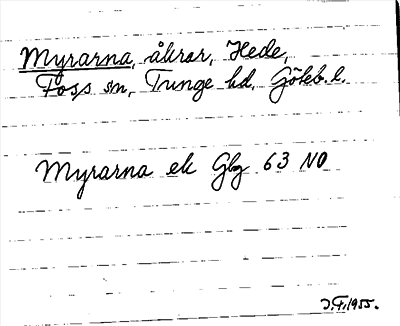 Myrarna, åkrar, Hede,
Foss sn, Tunge hd, Göteb. l.
Myrarna ek Gbg 63 NO
J.F. 1955.